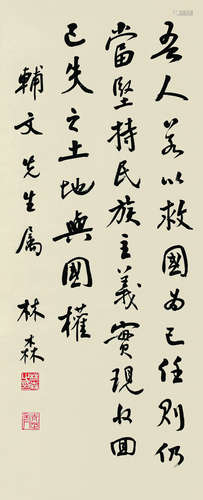 吾人若以救國為己任則仍
當堅持民族主義實現收回
已失之土地與國權
輔文先生屬
林森